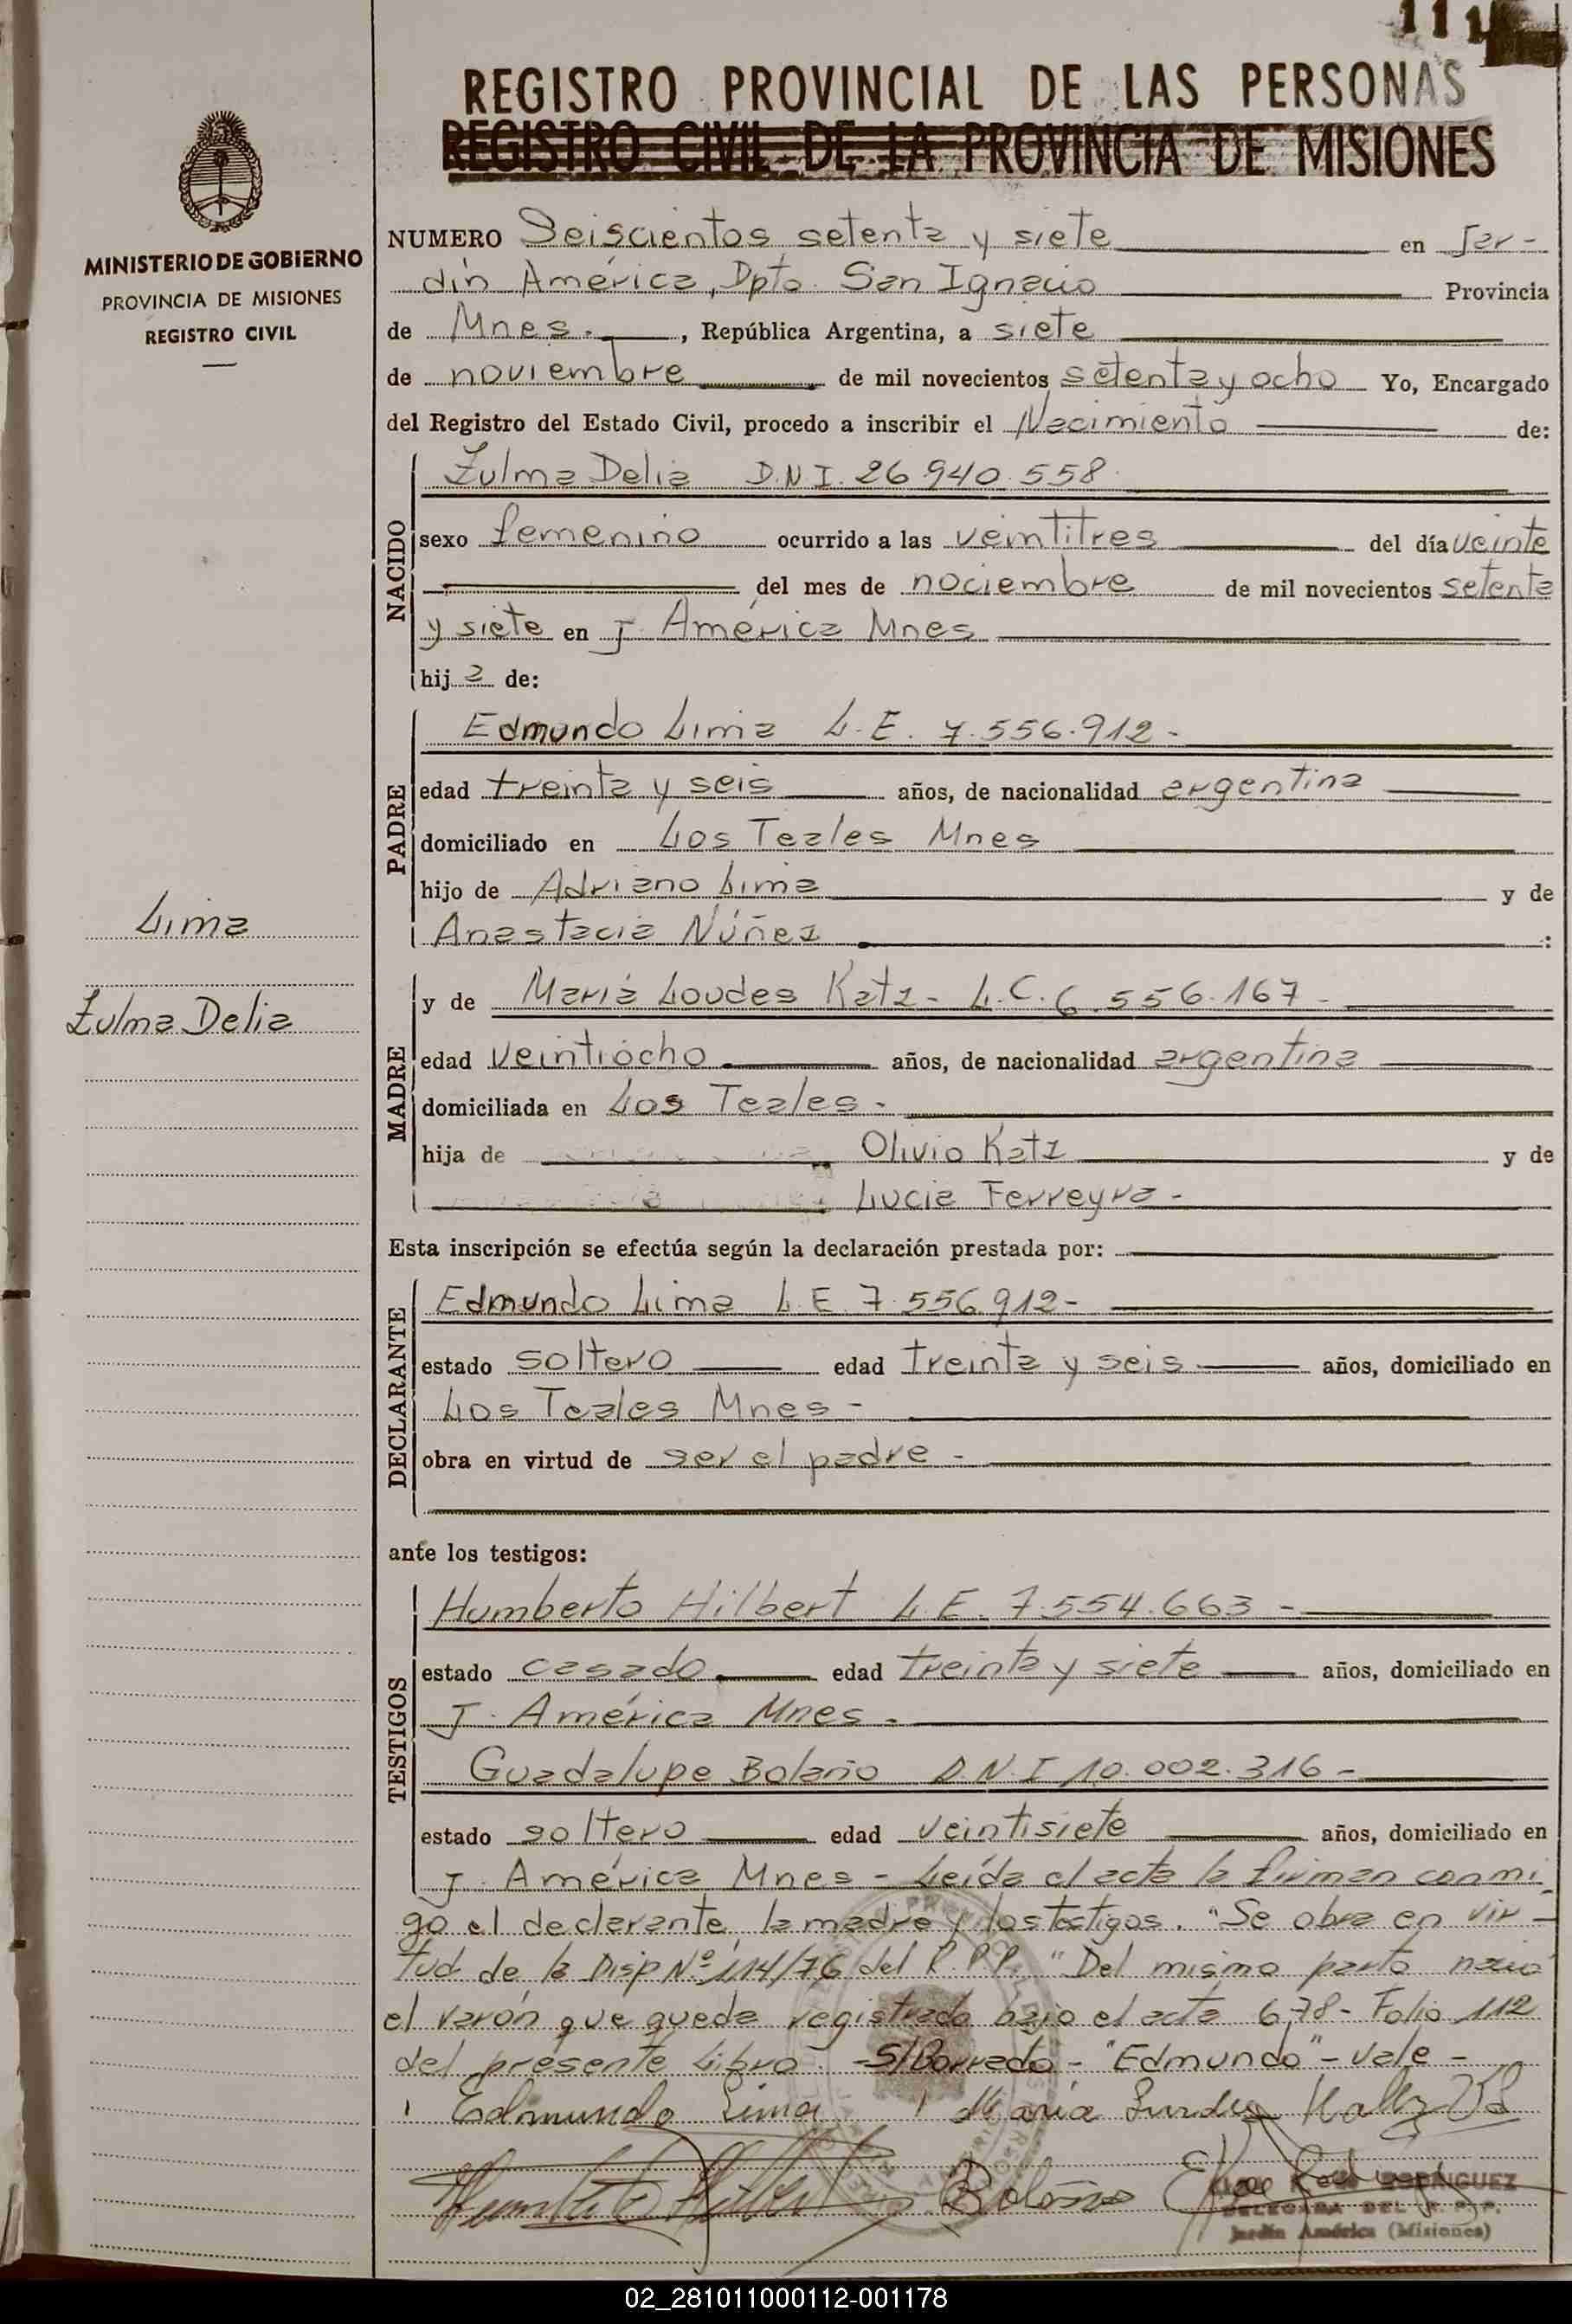 111
REGISTRO PROVINCIAL DE LAS PERSONAS
REGISTRO CIVIL DE LA PROVINCIA DE MISIONES
MINISTERIO DE GOBIERNO
PROVINCIA DE MISIONES
REGISTRO CIVIL
Lima
Zulma Delia
NUMERO Seiscientos setenta y siete en Jar-
dín América, Dpto. San Ignacio Provincia
de Mnes. , República Argentina, a siete
de noviembre de mil novecientos setenta y ocho Yo, Encargado
del Registro del Estado Civil, procedo a inscribir el Nacimiento de:
NACIDO
Zulma Delia D.N.I. 26.940.558
sexo femenino ocurrido a las veintitres del día veinte
del mes de nociembre de mil novecientos setenta
y siete en J. América Mnes
hij a de:
PADRE
Edmundo Lima L.E. 7.556.912-
edad treinta y seis años, de nacionalidad argentina
domiciliado en Los Teales Mnes
hijo de Adriano Lima y de
Anastacia Núñez :
MADRE
y de María Loudes Katz- L.C. 6.556.167-
edad veintiocho años, de nacionalidad argentina
domiciliada en Los Teales-
hija de Olivio Katz y de
Lucia Ferreyra-
Esta inscripción se efectúa según la declaración prestada por:
DECLARANTE
Edmundo Lima L.E. 7.556.912-
estado soltero edad treinta y seis años, domiciliado en
Los Teales Mnes-
obra en virtud de ser el padre-
ante los testigos:
TESTIGOS
Humberto Hilbert L.E. 7.554.663-
estado casado edad treinta y siete años, domiciliado en
J. América Mnes.
Guadalupe Bolaño D.N.I 10.002.316-
estado soltero edad veintisiete años, domiciliado en
J. América Mnes- Leída el acta la firman conmi-
go el declarante, la madre y los testigos. "Se obra en vir-
tud de la Disp Nº 114/76 del R.P.P." Del mismo parto nació
el varón que queda registrado bajo el acta 678- Folio 112
del presente Libro. -S/Borrado- "Edmundo"- Vale-
Edmundo Lima María
Bolaño
RODRIGUEZ
DELEGADA DEL R.P.P.
Jardín América (Misiones)
02_281011000112-001178